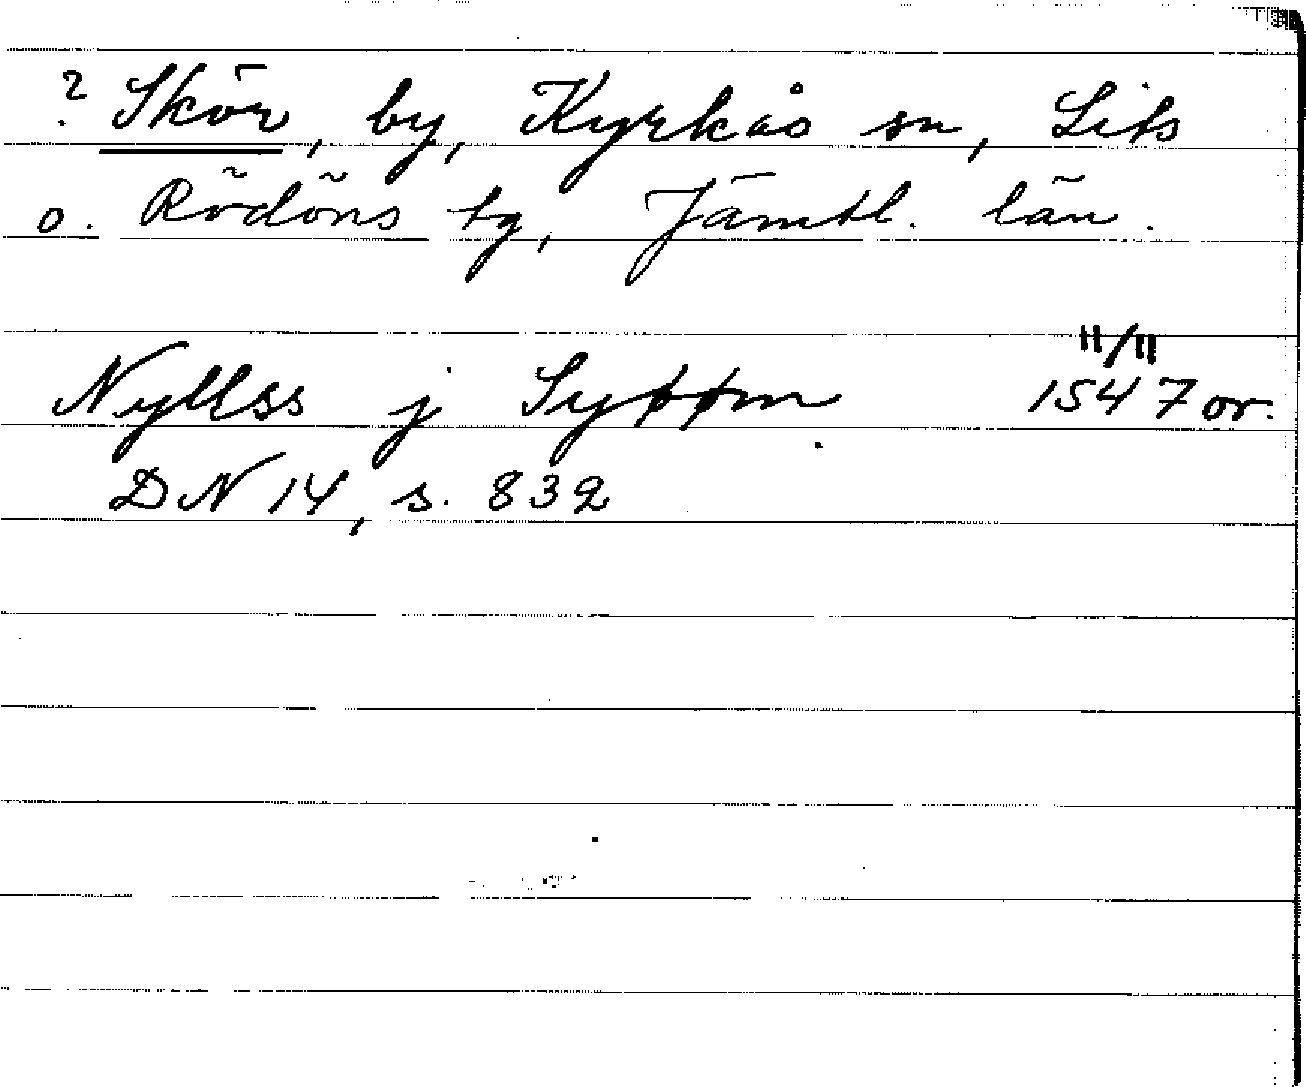 ? Skör, by, Kyrkås sn, Lits
o. Rödöns tg, Jämtl. län.
11/11
Nyllss j Syøøm 1547 or.
DN 14, s. 832